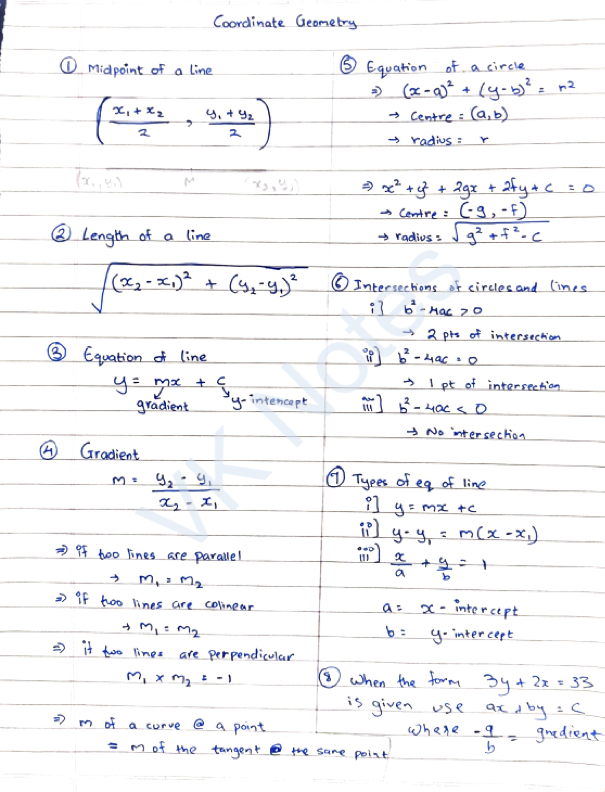 Coordinate Geometry
① Midpoint of a line
( x₁ + x₂ / 2 , y₁ + y₂ / 2 )
(x₁, y₁) M (x₂, y₂)
② Length of a line
√(x₂ - x₁)² + (y₂ - y₁)²
③ Equation of line
y = mx + c
gradient y-intercept
④ Gradient
m = y₂ - y₁ / x₂ - x₁
⇒ if two lines are parallel
→ m₁ = m₂
⇒ if two lines are colinear
→ m₁ = m₂
⇒ if two lines are perpendicular
m₁ x m₂ = -1
⇒ m of a curve @ a point
= m of the tangent @ the same point
⑤ Equation of a circle
⇒ (x-a)² + (y-b)² = r²
→ Centre = (a,b)
→ radius = r
⇒ x² + y² + 2gx + 2fy + c = 0
→ Centre = (-g, -f)
→ radius = √g² + f² - c
⑥ Intersections of circles and lines
i] b² - 4ac > 0
→ 2 pts of intersection
ii] b² - 4ac = 0
→ 1 pt of intersection
iii] b² - 4ac < 0
→ No intersection
⑦ Types of eq of line
i] y = mx + c
ii] y - y₁ = m(x - x₁)
iii] x/a + y/b = 1
a = x - intercept
b = y - intercept
⑧ When the form 3y + 2x = 33
is given use ax + by = c
where -a/b = gradient
VK Notes